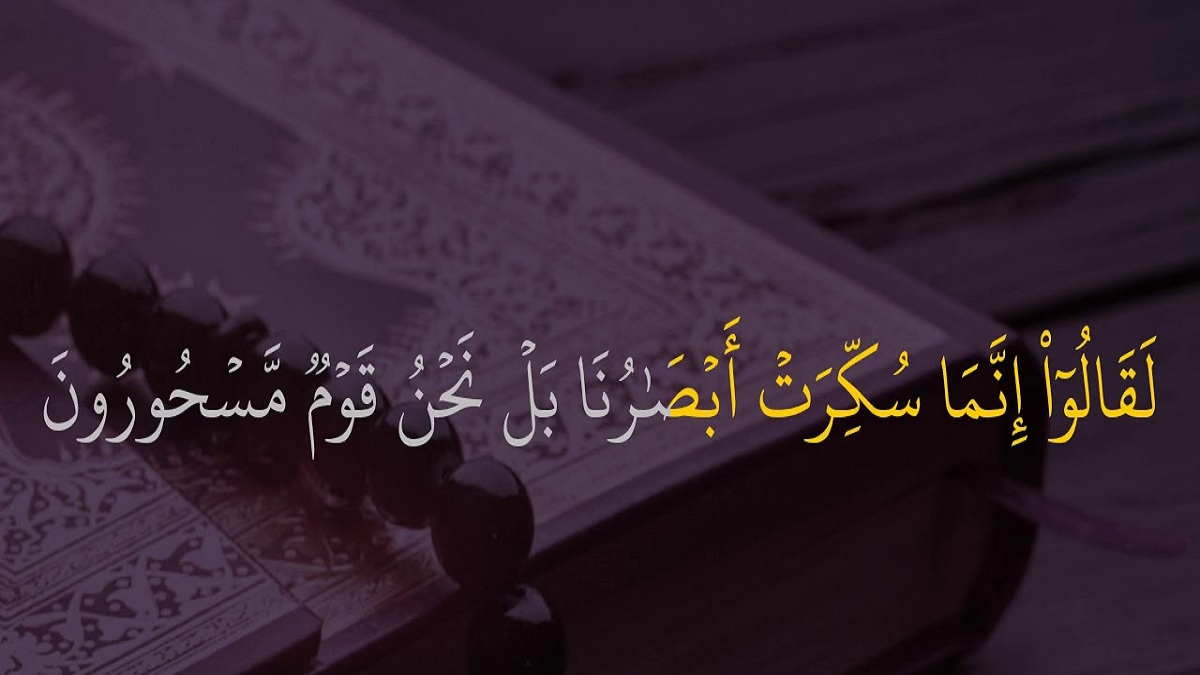 لَقَالُوٓا۟ إِنَّمَا سُكِّرَتْ أَبْصَـٰرُنَا بَلْ نَحْنُ قَوْمٌ مَّسْحُورُونَ